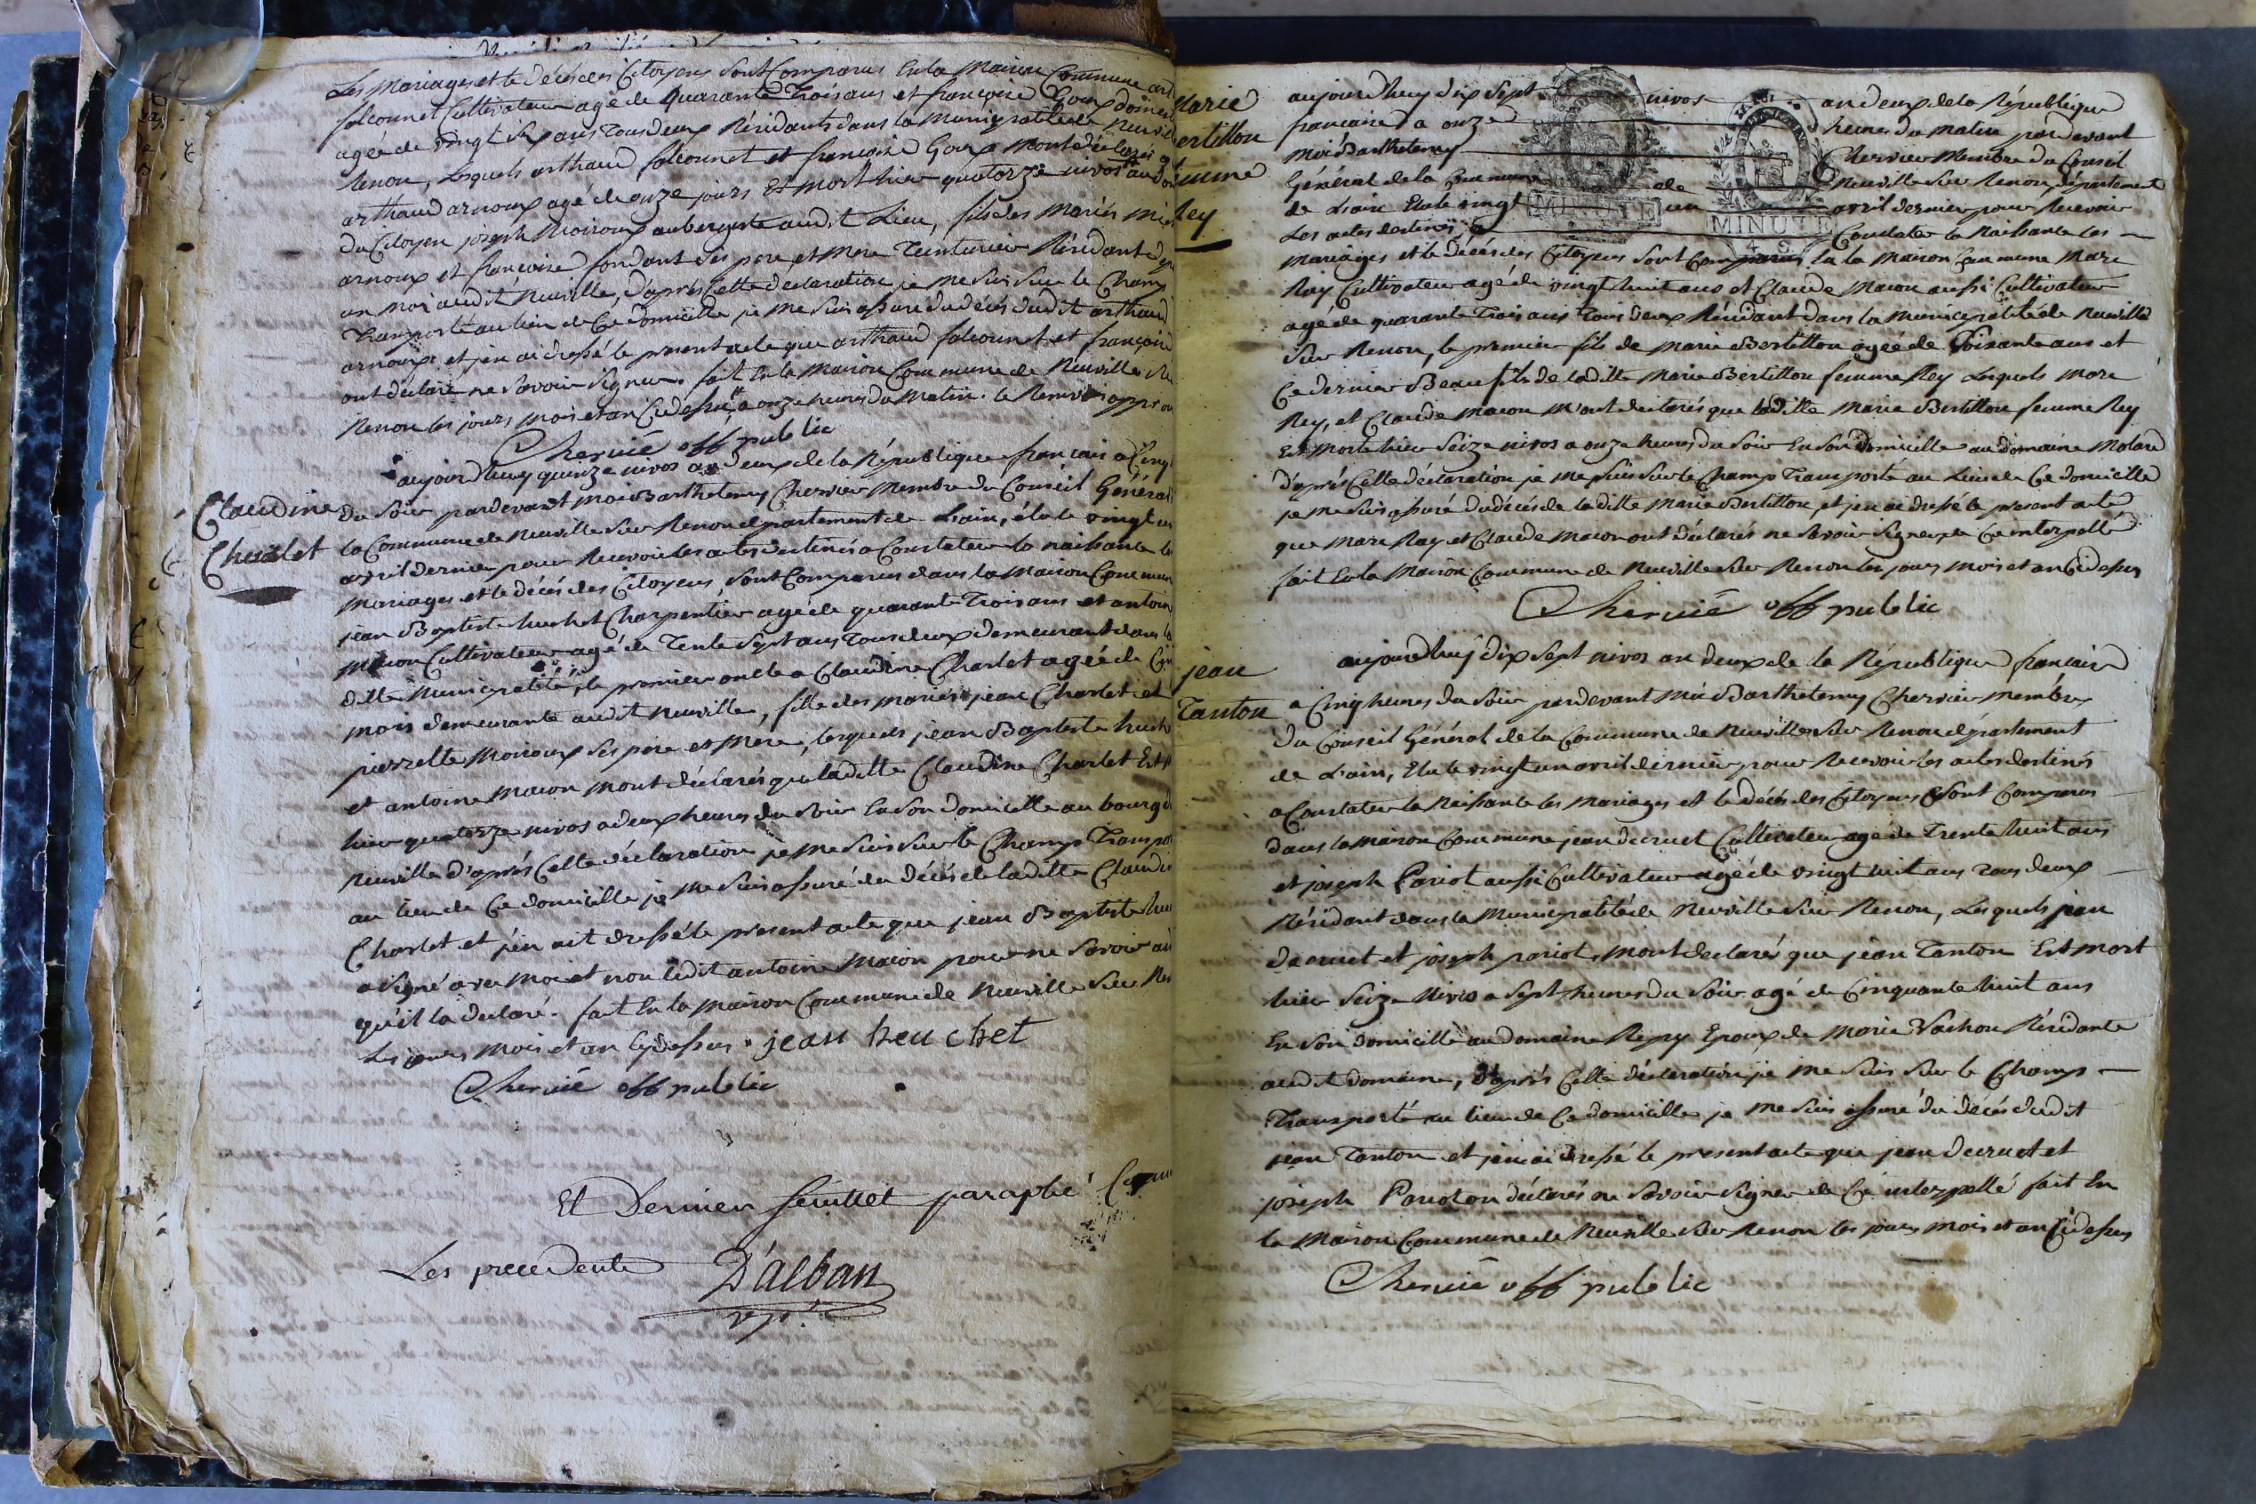 Les mariages et le décés des Citoyens sont Comparus En la Maison Commune art
falcounet Cultivateur agé de quarante Trois ans et françoise Goux domes
agée de vingt six ans Tous deux Résidants dans la Municipalité de Neuville
Renon, Lesquels arthaud falcounet et françoise Goux Mont déclarés q
arthaud arnoux agé de onze jours Est mort hier quatorze nivos au do
du Citoyen joseph Moiroux aubergiste audit Lieu, fils des Mariés
arnoux et françoise fondant ses pere et Mere Teinturier Résidant de
un moi audit Neuville, d'après Cette declaration je me suis sur le Champ
Transporté au lieu de Ce domicille je me suis assuré du décés dudit arthaud
arnoux et jen ai dressé le present acte que arthaud falcounet et françoise
ont déclaré ne Savoir Signer. fait En la Maison Commune de Neuville su
Renon les jours mois et an Cy dessus, a onze heures du Matin. le Renvois approu
Chervié off public
aujourd'huy quinze nivos an deux de la République françaisse a Cinq
Claudine
Charlet
du Soir pardevant moi Barthelemy Chervier Membre du Conseil Général
la Commune de Neuville sur Renon département de Lain, élu le vingt un
avril dernier pour Recevoir les actes destinés a Constater la naissance les
Mariages et le décés des Citoyens sont Comparus dans la Maison Commun
jean Baptiste huchet Charpentier agé de quarante Trois ans et antoin
Macon Cultivateur agé de Tente Sept ans Tous deux demeurant dans la
ditte Municipalité, le premier oncle a Claudine Charlet agée de Cin
mois demeurante audit Neuville, fille des Mariés jean Charlet et
pierrette Moiroux Ses pere et Mere, lesquels jean Baptiste huch
et antoine Macon mont déclarés que laditte Claudine Charlet Est
hier quatorze nivos a deux heures du Soir En Son domicille au bourg d
Neuville d'après Cette déclaration je me suis sur le Champ Transpor
au lieu de Ce domicille je me suis assuré du décés de laditte Claudin
Charlet et j'en ait dressé le present acte que jean Baptiste hu
a Signé avec Moi et non ledit antoine Macon pour ne Savoir ai
qu'il la declaré. fait En la Maison Commune de Neuville sur Ren
Les jours Mois et an Cy dessus. jean heuchet
Chervié off public
Et Dernier feuillet paraphé Comm
Les precedents D'alban
Marie
Bertillon
femme
Rey
aujourd'huy dix Sept nivos an deux de la République
française a onze heures du Matin pardevant
Moi Barthelemy Chervier Membre du Conseil
Général de la Commune de Neuville sur Renon département
de Lain Elu le vingt un avril dernier pour Recevoir
MINUTE
MINUTE
4 S.
Les actes destinés a Constater la Naissance les
Mariages et le décés des Citoyens sont Comparus En la Maison Commune Marc
Ray Cultivateur agé de vingt huit ans et Claude Macon aussi Cultivateur
agé de quarante Trois ans Tous deux Résidant dans la Municipalité de Neuville
Sur Renon, le premier fils de Marie Bertillon agée de Soixante ans et
Ce dernier Beau fils de laditte Marie Bertillon femme Rey Lesquels Marc
Rey, et Claude Macon M'ont declarés que laditte Marie Bertillon femme Rey
Est Morte hier Seize nivos a onze heures du Soir En Son domicille au domaine Molard
d'après Cette déclaration je me suis sur le Champ Transporté au Lieu de Ce domicille
je me suis assuré du décés de laditte Marie Bertillon, et jen ai dressé le present acte
que Marc Ray et Claude Macon ont déclarés ne Savoir Signer de Ce interpellé
fait En la Maison Commune de Neuville sur Renon les jours Mois et an Cidessus
Chervié off public
jean
Tanton
aujourd'huy dix Sept nivos an deux de la République française
a Cinq heures du Soir pardevant Moi Barthelemy Chervier Membre
du Conseil Général de la Commune de Neuville sur Renon département
de L'ain, Elu le vingt un avril dernier pour Recevoir les actes destinés
a Constater la Naissance les Mariages et le décés des Citoyens Sont Comparus
dans la Maison Commune jean ducruet Cultivateur agé de Trente huit ans
et joseph Pariot aussi Cultivateur agé de vingt huit ans Tous deux
Résidant dans la Municipalité de Neuville sur Renon, Lesquels jean
ducruet et joseph pariot, mont declarés que jean Tanton Est mort
hier Seize Nivos a Sept heures du Soir agé de Cinquante huit ans
En Son domicille au domaine Repy Epoux de Marie Vachon Résidante
audit domaine, d'après Cette déclaration je me suis sur le Champ
Transporté au lieu de Ce domicille je me suis assuré du décés dudit
jean Tanton et jen ai dressé le present acte que jean ducruet et
joseph Pariot on déclarés ne Savoir Signer de Ce interpellé fait En
la Maison Commune de Neuville sur Renon les jours Mois et an Cidessus
Chervié off public